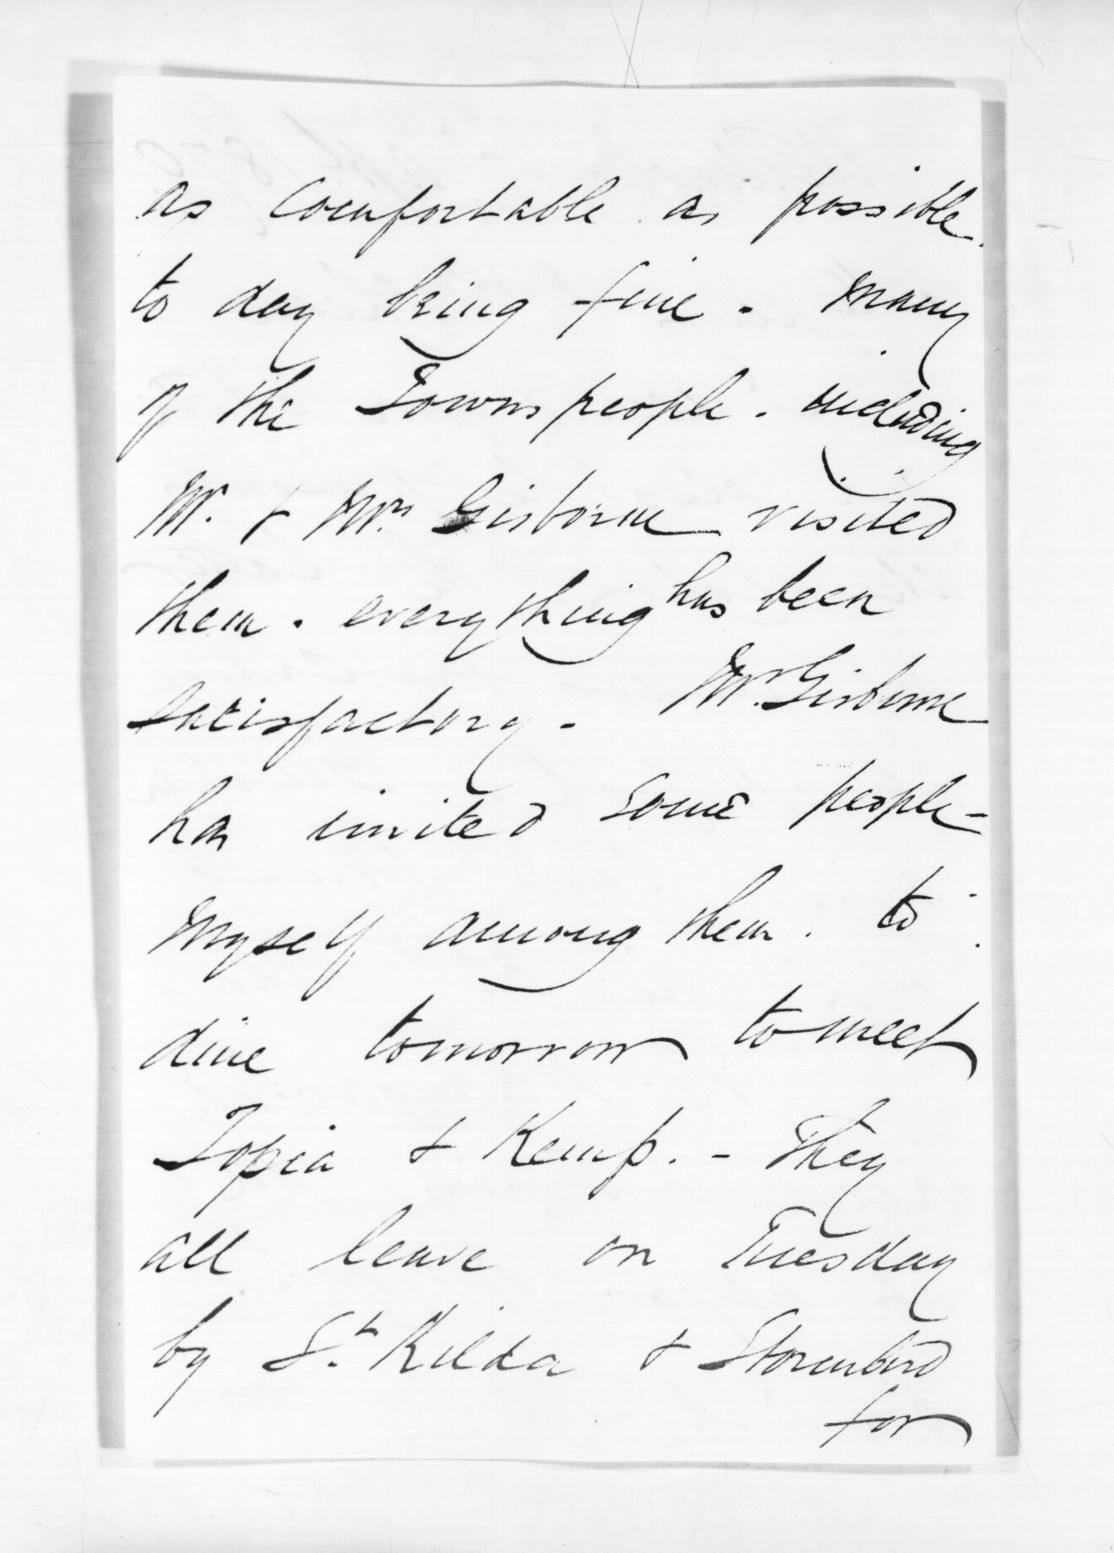 as comfortable as possible.
to day being fine. Many
of the Townspeople. including
Mr. & Mrs Gisborne visited
them. everything has been
satisfactory. Mr. Gisborne
has invited some people -
myself among them. to
dine tomorrow to meet
Topia & Kemp. - They
all leave on Tuesday
by St. Kilda & Stormbird
for